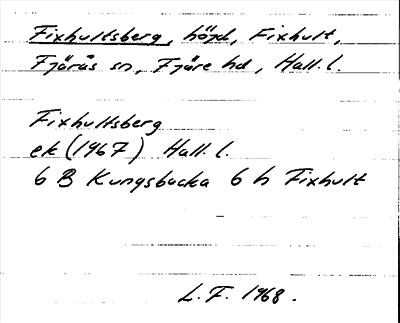 Fixhultsberg, höjd, Fixhult,
Fjärås sn, Fjäre hd, Hall. l.
Fixhultsberg
ek (1967) Hall. l.
6 B Kungsbacka 6 h Fixhult
L.F. 1968.